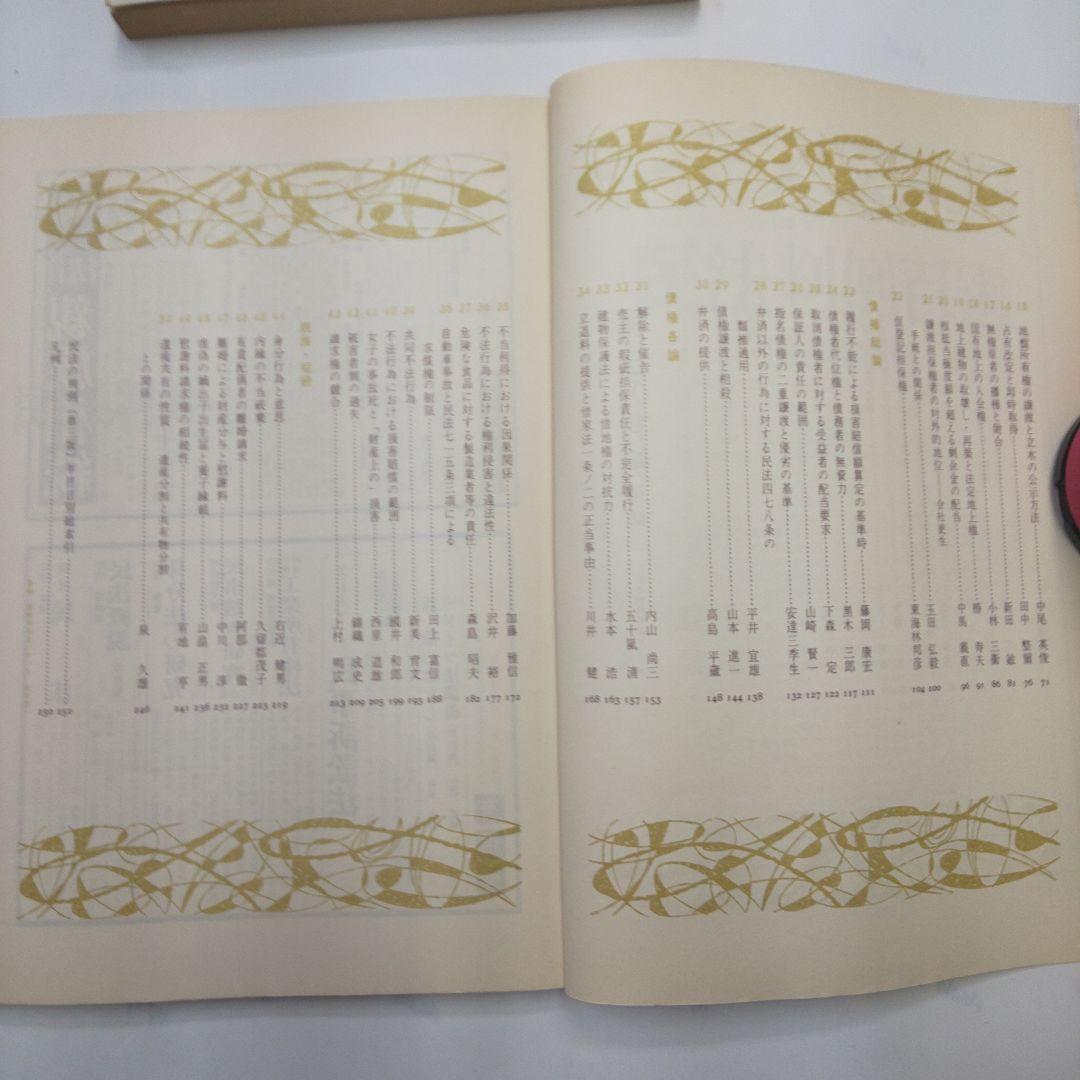 15 地盤所有権の譲渡と立木の公示方法……中尾 英俊 71
16 占有改定と即時取得……田中 整爾 76
17 無権原者の播種と附合……新田 敏 81
18 国有地上の入会権……小林 三衛 86
19 地上建物の取壊し・再築と法定地上権……椿 寿夫 91
20 根抵当極度額を超える剰余金の配当……中馬 義直 96
21 譲渡担保権者の対外的地位——会社更生
手続との関係……玉田 弘毅 100
22 仮登記担保権……東海林邦彦 104
債権総論
23 履行不能による損害賠償額算定の基準時……藤岡 康宏 111
24 債権者代位権と債務者の無資力……黒木 三郎 117
25 取消債権者に対する受益者の配当要求……下森 定 122
26 保証人の責任の範囲……山崎 賢一 127
27 指名債権の二重譲渡と優劣の基準……安達三季生 132
28 弁済以外の行為に対する民法四七八条の
類推適用……平井 宜雄 138
29 債権譲渡と相殺……山本 進一 144
30 弁済の提供……高島 平蔵 148
債権各論
31 解除と催告……内山 尚三 153
32 売主の瑕疵担保責任と不完全履行……五十嵐 清 157
33 建物保護法による借地権の対抗力……水本 浩 163
34 立退料の提供と借家法一条ノ二の正当事由……川井 健 168
35 不当利得における因果関係……加藤 雅信 172
36 不法行為における権利侵害と違法性……沢井 裕 177
37 危険な食品に対する製造業者等の責任……森島 昭夫 182
38 自動車事故と民法七一五条三項による
求償権の制限……田上 富信 188
39 共同不法行為……新美 育文 193
40 不法行為における損害賠償の範囲……國井 和郎 199
41 女子の事故死と「財産上の」損害……西原 道雄 205
42 被害者側の過失……錦織 成史 209
43 請求権の競合……上村 明広 213
親族・相続
44 身分行為と意思……右近 健男 219
45 内縁の不当破棄……久留都茂子 223
46 有責配偶者の離婚請求……阿部 徹 227
47 離婚による財産分与と慰謝料……中川 淳 232
48 虚偽の嫡出子出生届と養子縁組……山畠 正男 236
49 慰謝料請求権の相続性……有地 亨 241
50 遺産共有の性質——遺産分割と共有物分割
との関係……泉 久雄 246
民法の判例〔第三版〕年月日別総索引……252
凡例……250